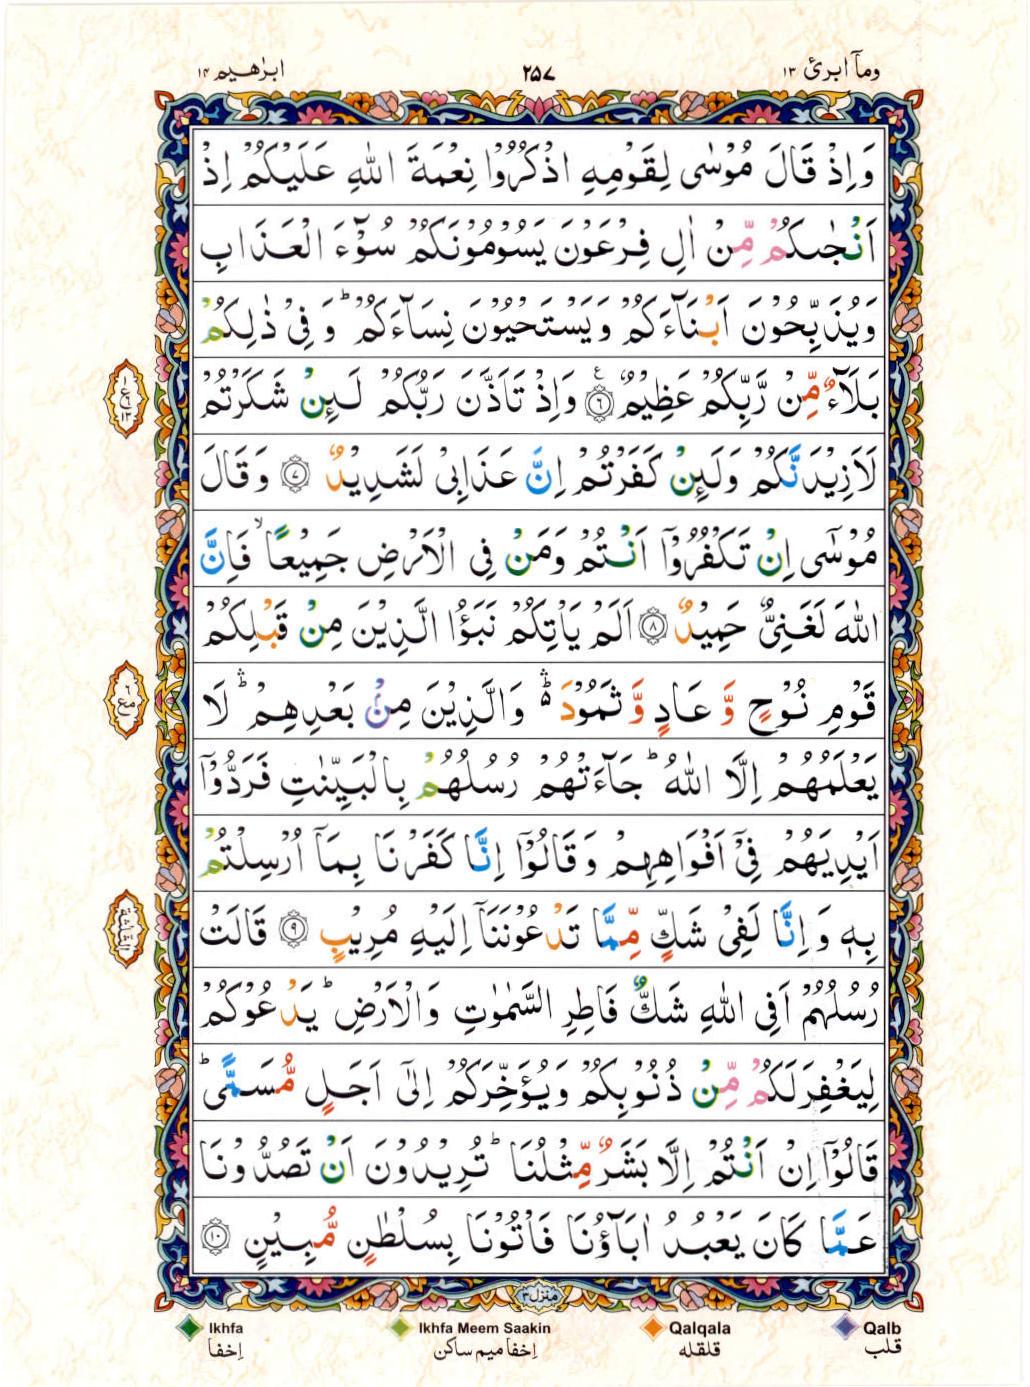 ابرٰهيم ١٤
٢٥٧
وماۤ ابرئ ١٣
وَاِذْ قَالَ مُوْسٰى لِقَوْمِهِ اذْكُرُوْا نِعْمَةَ اللّٰهِ عَلَيْكُمْ اِذْ
اَنْجٰىكُمْ مِّنْ اٰلِ فِرْعَوْنَ يَسُوْمُوْنَكُمْ سُوْٓءَ الْعَذَابِ
وَيُذَبِّحُوْنَ اَبْنَآءَكُمْ وَيَسْتَحْيُوْنَ نِسَآءَكُمْ ؕ وَفِىْ ذٰلِكُمْ
بَلَآءٌ مِّنْ رَّبِّكُمْ عَظِيْمٌ ع ٦ وَاِذْ تَاَذَّنَ رَبُّكُمْ لَئِنْ شَكَرْتُمْ
لَاَزِيْدَنَّكُمْ وَلَئِنْ كَفَرْتُمْ اِنَّ عَذَابِىْ لَشَدِيْدٌ ٧ وَقَالَ
مُوْسٰٓى اِنْ تَكْفُرُوْٓا اَنْتُمْ وَمَنْ فِى الْاَرْضِ جَمِيْعًا ۙ فَاِنَّ
اللّٰهَ لَغَنِىٌّ حَمِيْدٌ ٨ اَلَمْ يَاْتِكُمْ نَبَؤُا الَّذِيْنَ مِنْ قَبْلِكُمْ
قَوْمِ نُوْحٍ وَّعَادٍ وَّثَمُوْدَ ۛؕ وَالَّذِيْنَ مِنْۢ بَعْدِهِمْ ۛؕ لَا
يَعْلَمُهُمْ اِلَّا اللّٰهُ ؕ جَآءَتْهُمْ رُسُلُهُمْ بِالْبَيِّنٰتِ فَرَدُّوْٓا
اَيْدِيَهُمْ فِىْٓ اَفْوَاهِهِمْ وَقَالُوْٓا اِنَّا كَفَرْنَا بِمَآ اُرْسِلْتُمْ
بِهٖ وَاِنَّا لَفِىْ شَكٍّ مِّمَّا تَدْعُوْنَنَآ اِلَيْهِ مُرِيْبٍ ٩ قَالَتْ
رُسُلُهُمْ اَفِى اللّٰهِ شَكٌّ فَاطِرِ السَّمٰوٰتِ وَالْاَرْضِ ؕ يَدْعُوْكُمْ
لِيَغْفِرَ لَكُمْ مِّنْ ذُنُوْبِكُمْ وَيُؤَخِّرَكُمْ اِلٰٓى اَجَلٍ مُّسَمًّى ؕ
قَالُوْٓا اِنْ اَنْتُمْ اِلَّا بَشَرٌ مِّثْلُنَا ؕ تُرِيْدُوْنَ اَنْ تَصُدُّوْنَا
عَمَّا كَانَ يَعْبُدُ اٰبَآؤُنَا فَاْتُوْنَا بِسُلْطٰنٍ مُّبِيْنٍ ١٠
منزل ٣
Ikhfa
اِخفا
Ikhfa Meem Saakin
اِخفا ميم ساكن
Qalqala
قلقله
Qalb
قلب